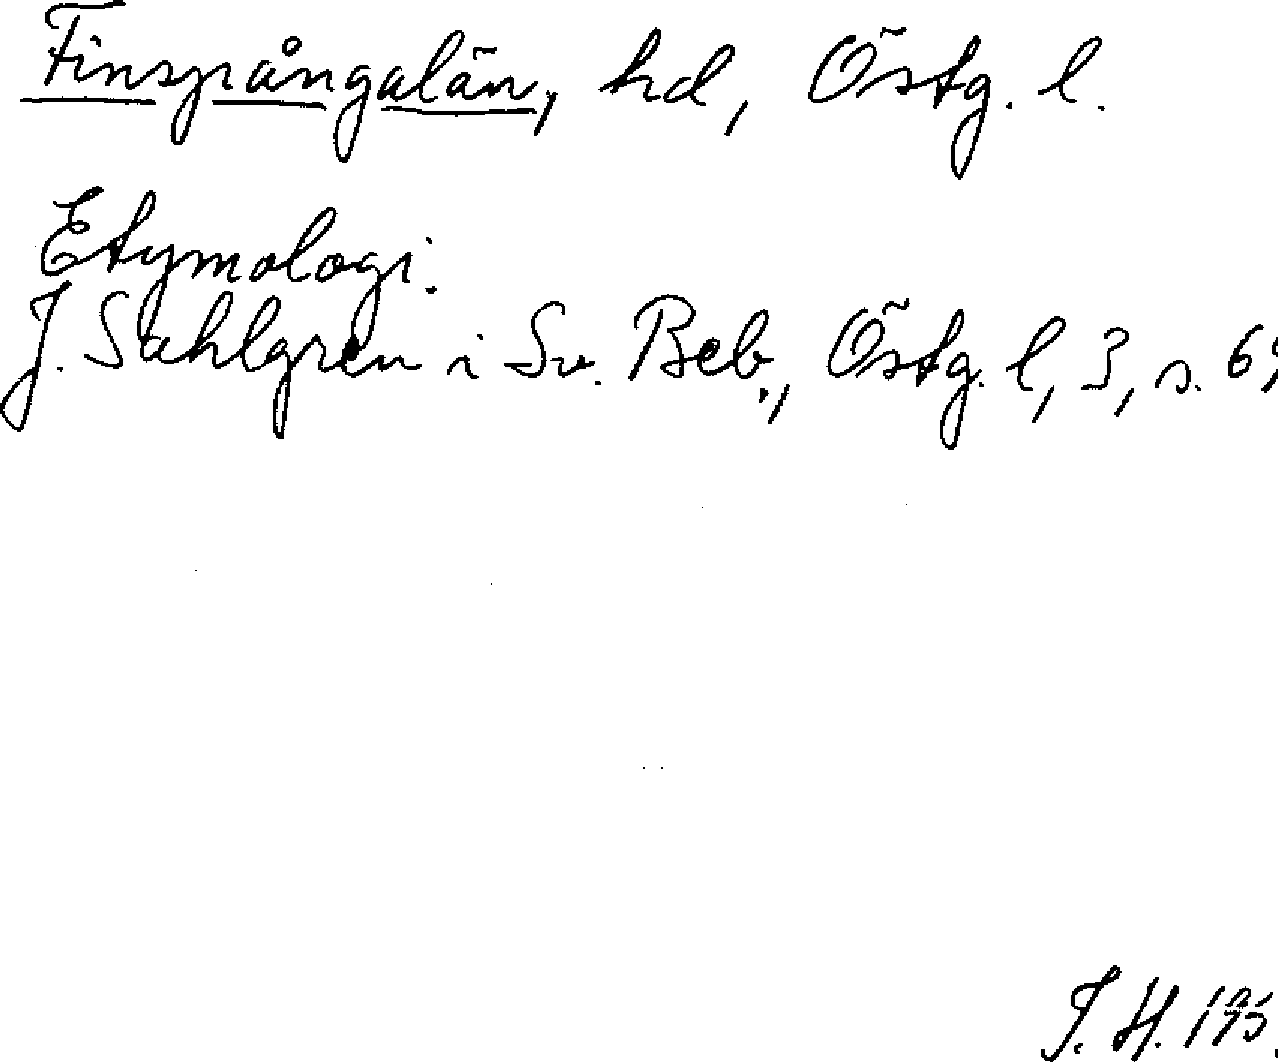 Finspångalän, hd, Östg. l.
Etymologi.
J. Sahlgren i Sv. Beb., Östg. l, 3, s.
J. H.